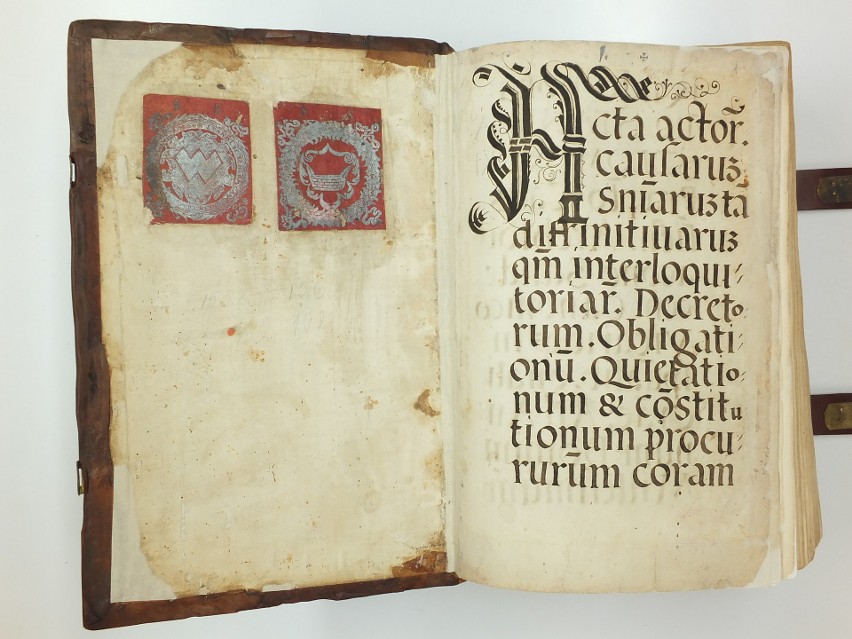 Acta actoꝝ.
cauſaruꝫ
Sn̄iaruꝫ ta
diffinitiuaruꝫ
qm̄ interloqui⸗
toriar. Decreto⸗
rum. Obligati⸗
onū. Quietatio⸗
num & cōstitu
tionum procu⸗
rurūm coram